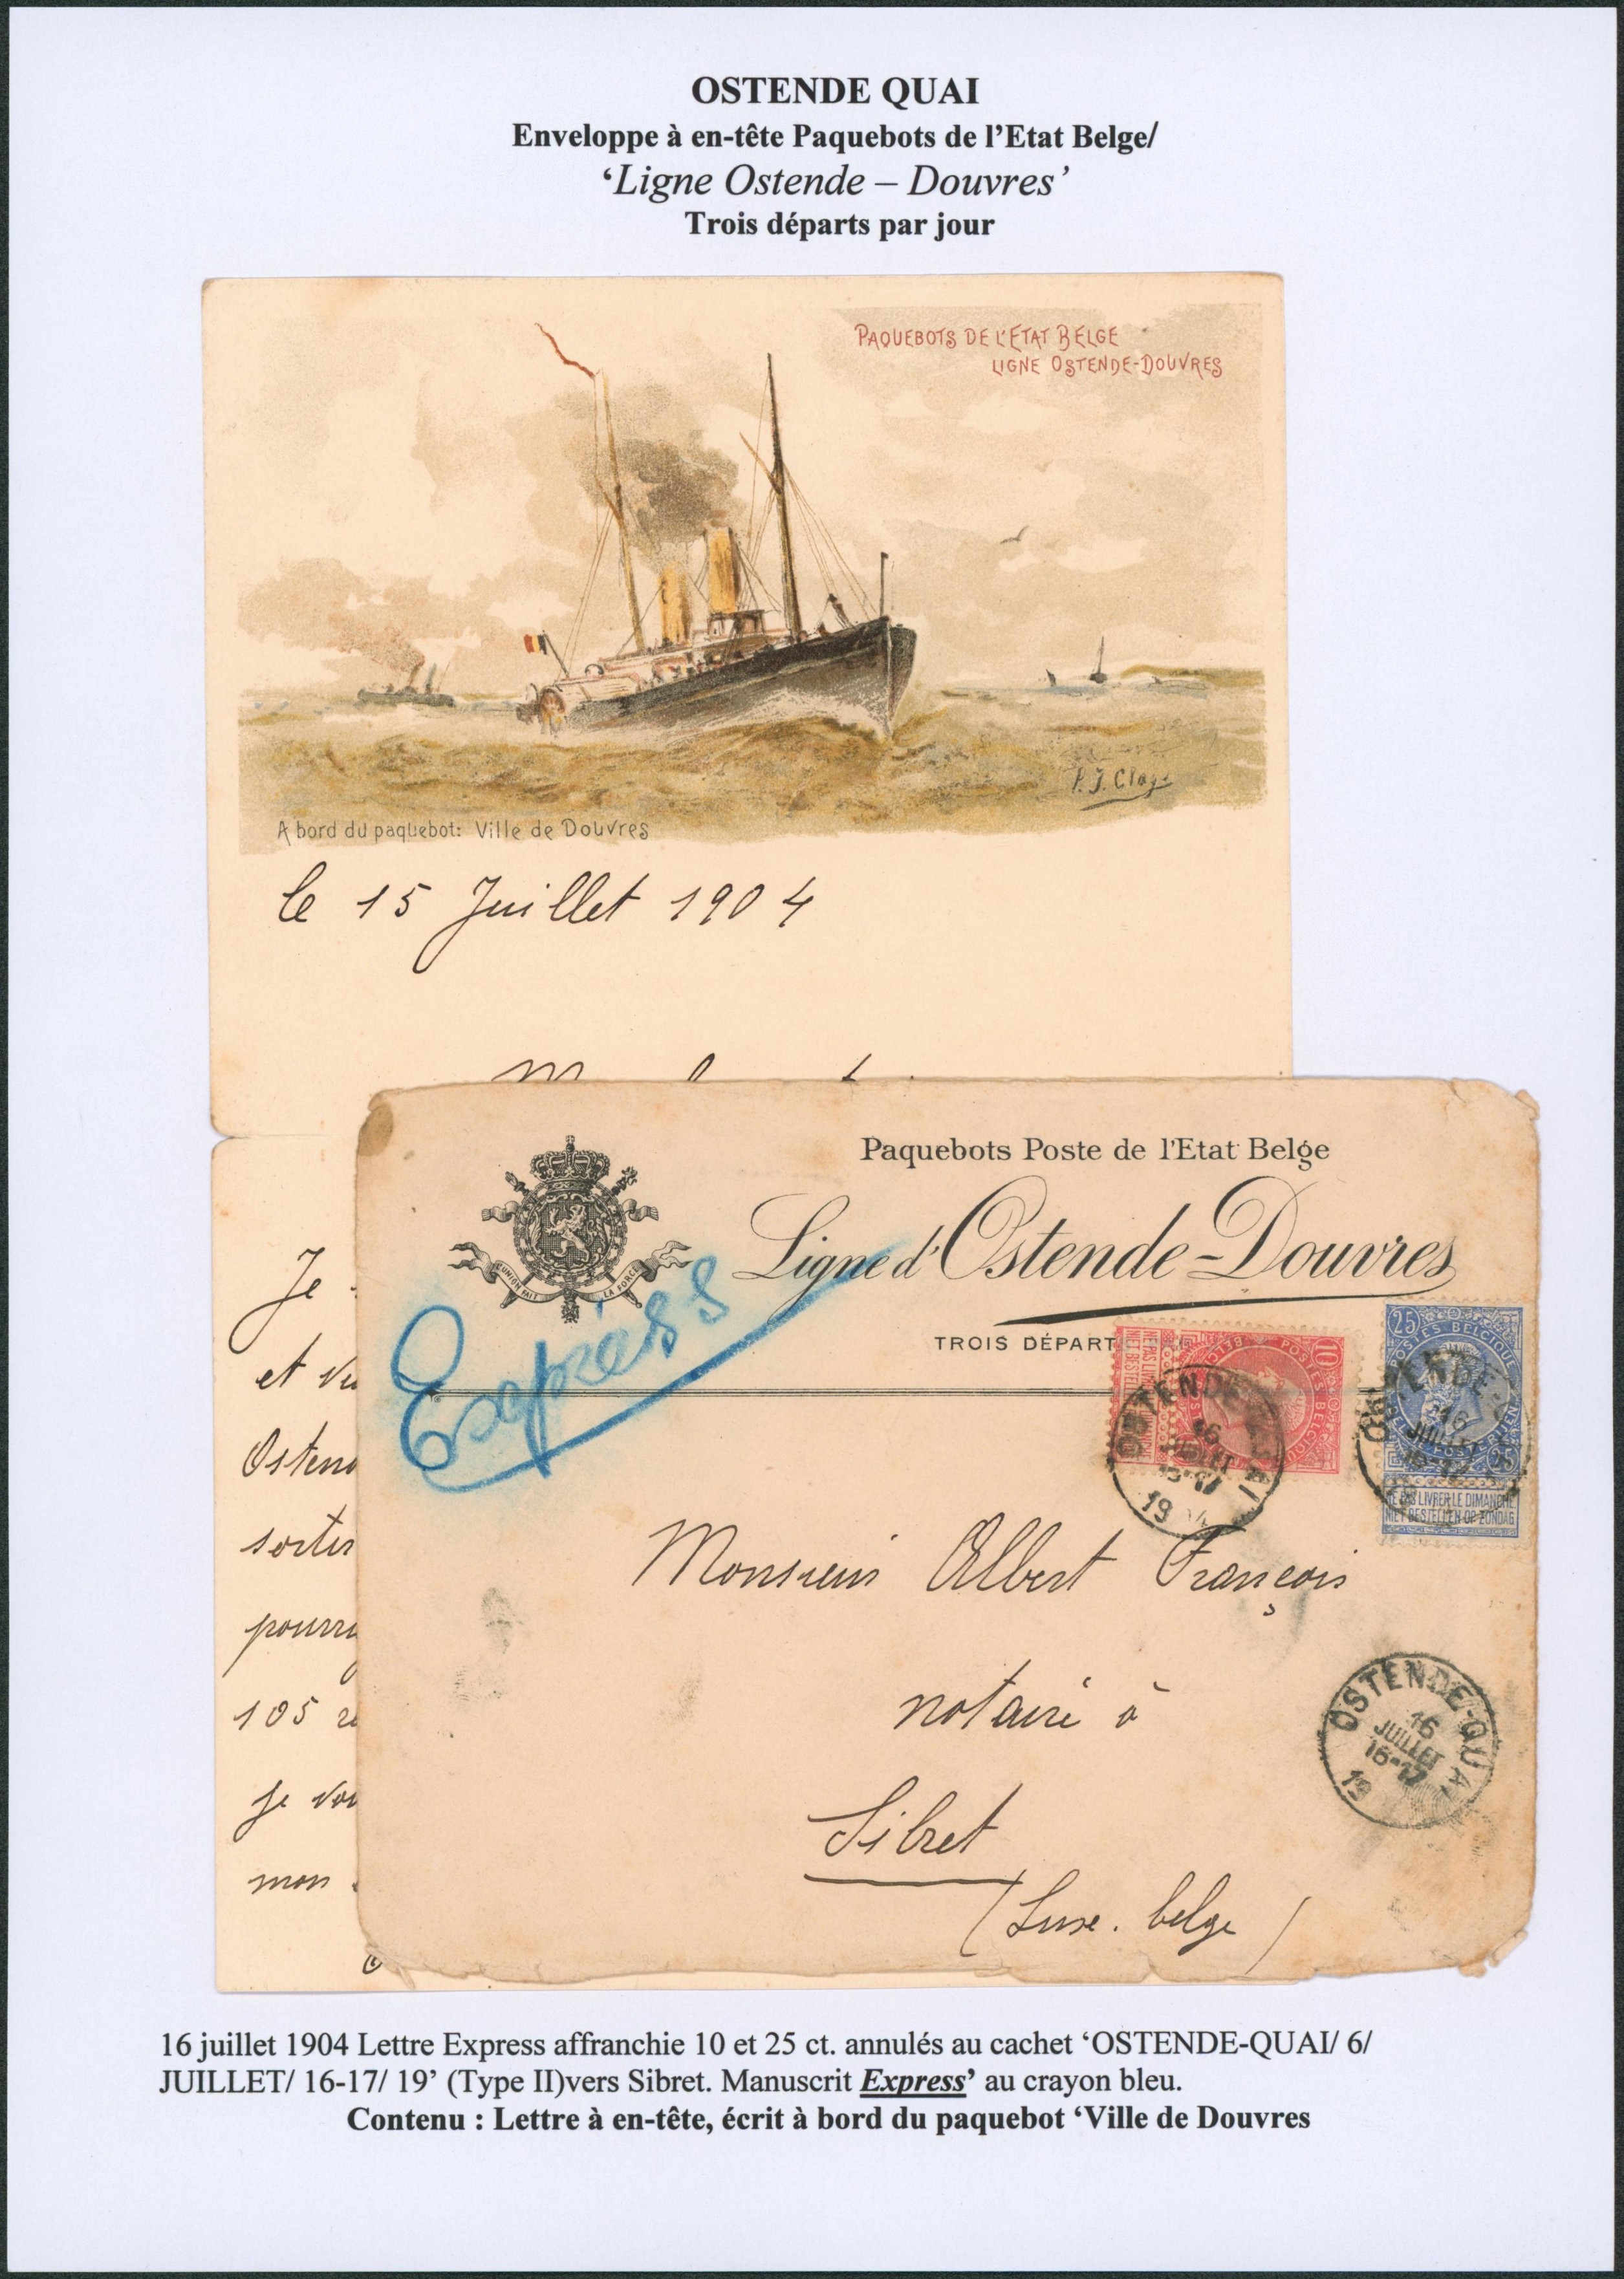 OSTENDE QUAI
Enveloppe à en-tête Paquebots de l’Etat Belge/
‘Ligne Ostende – Douvres’
Trois départs par jour
PAQUEBOTS DE L'ETAT BELGE
LIGNE OSTENDE-DOUVRES
P. J. Clays
A bord du paquebot: Ville de Douvres
le 15 Juillet 1904
Je
et
Ostend
sortir
pourr
105
je
mon
Paquebots Poste de l'Etat Belge
Ligne d'Ostende-Douvres
L'UNION FAIT LA FORCE
TROIS DÉPART
Express
10
POSTES BELGIQUE
OSTENDE
16
JUILLET
19
25
POSTES BELGIQUE
TENDE-
16
JUILLET
16-17
25
NE PAS LIVRER LE DIMANCHE
NIET BESTELLEN OP ZONDAG
Monsieur Albert François
notaire à
Sibret
(Luxe. belge)
OSTENDE-QUAI
16
JUILLET
16-17
19
16 juillet 1904 Lettre Express affranchie 10 et 25 ct. annulés au cachet ‘OSTENDE-QUAI/ 6/
JUILLET/ 16-17/ 19’ (Type II)vers Sibret. Manuscrit Express’ au crayon bleu.
Contenu : Lettre à en-tête, écrit à bord du paquebot ‘Ville de Douvres